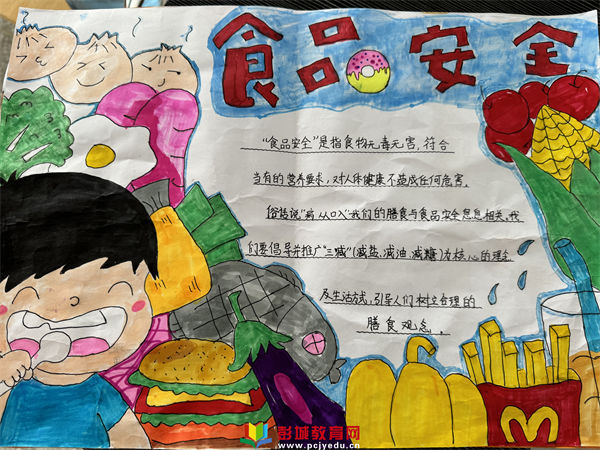 食品安全
"食品安全"是指食物无毒无害,符合
当有的营养要求,对人体健康不造成任何危害.
俗话说"病从口入"我们的膳食与食品安全息息相关,我
们要倡导并推广"三减"(减盐、减油、减糖)为核心的理念
及生活方式,引导人们树立合理的
膳食观念.
M
彭城教育网
www.pcjyedu.cn